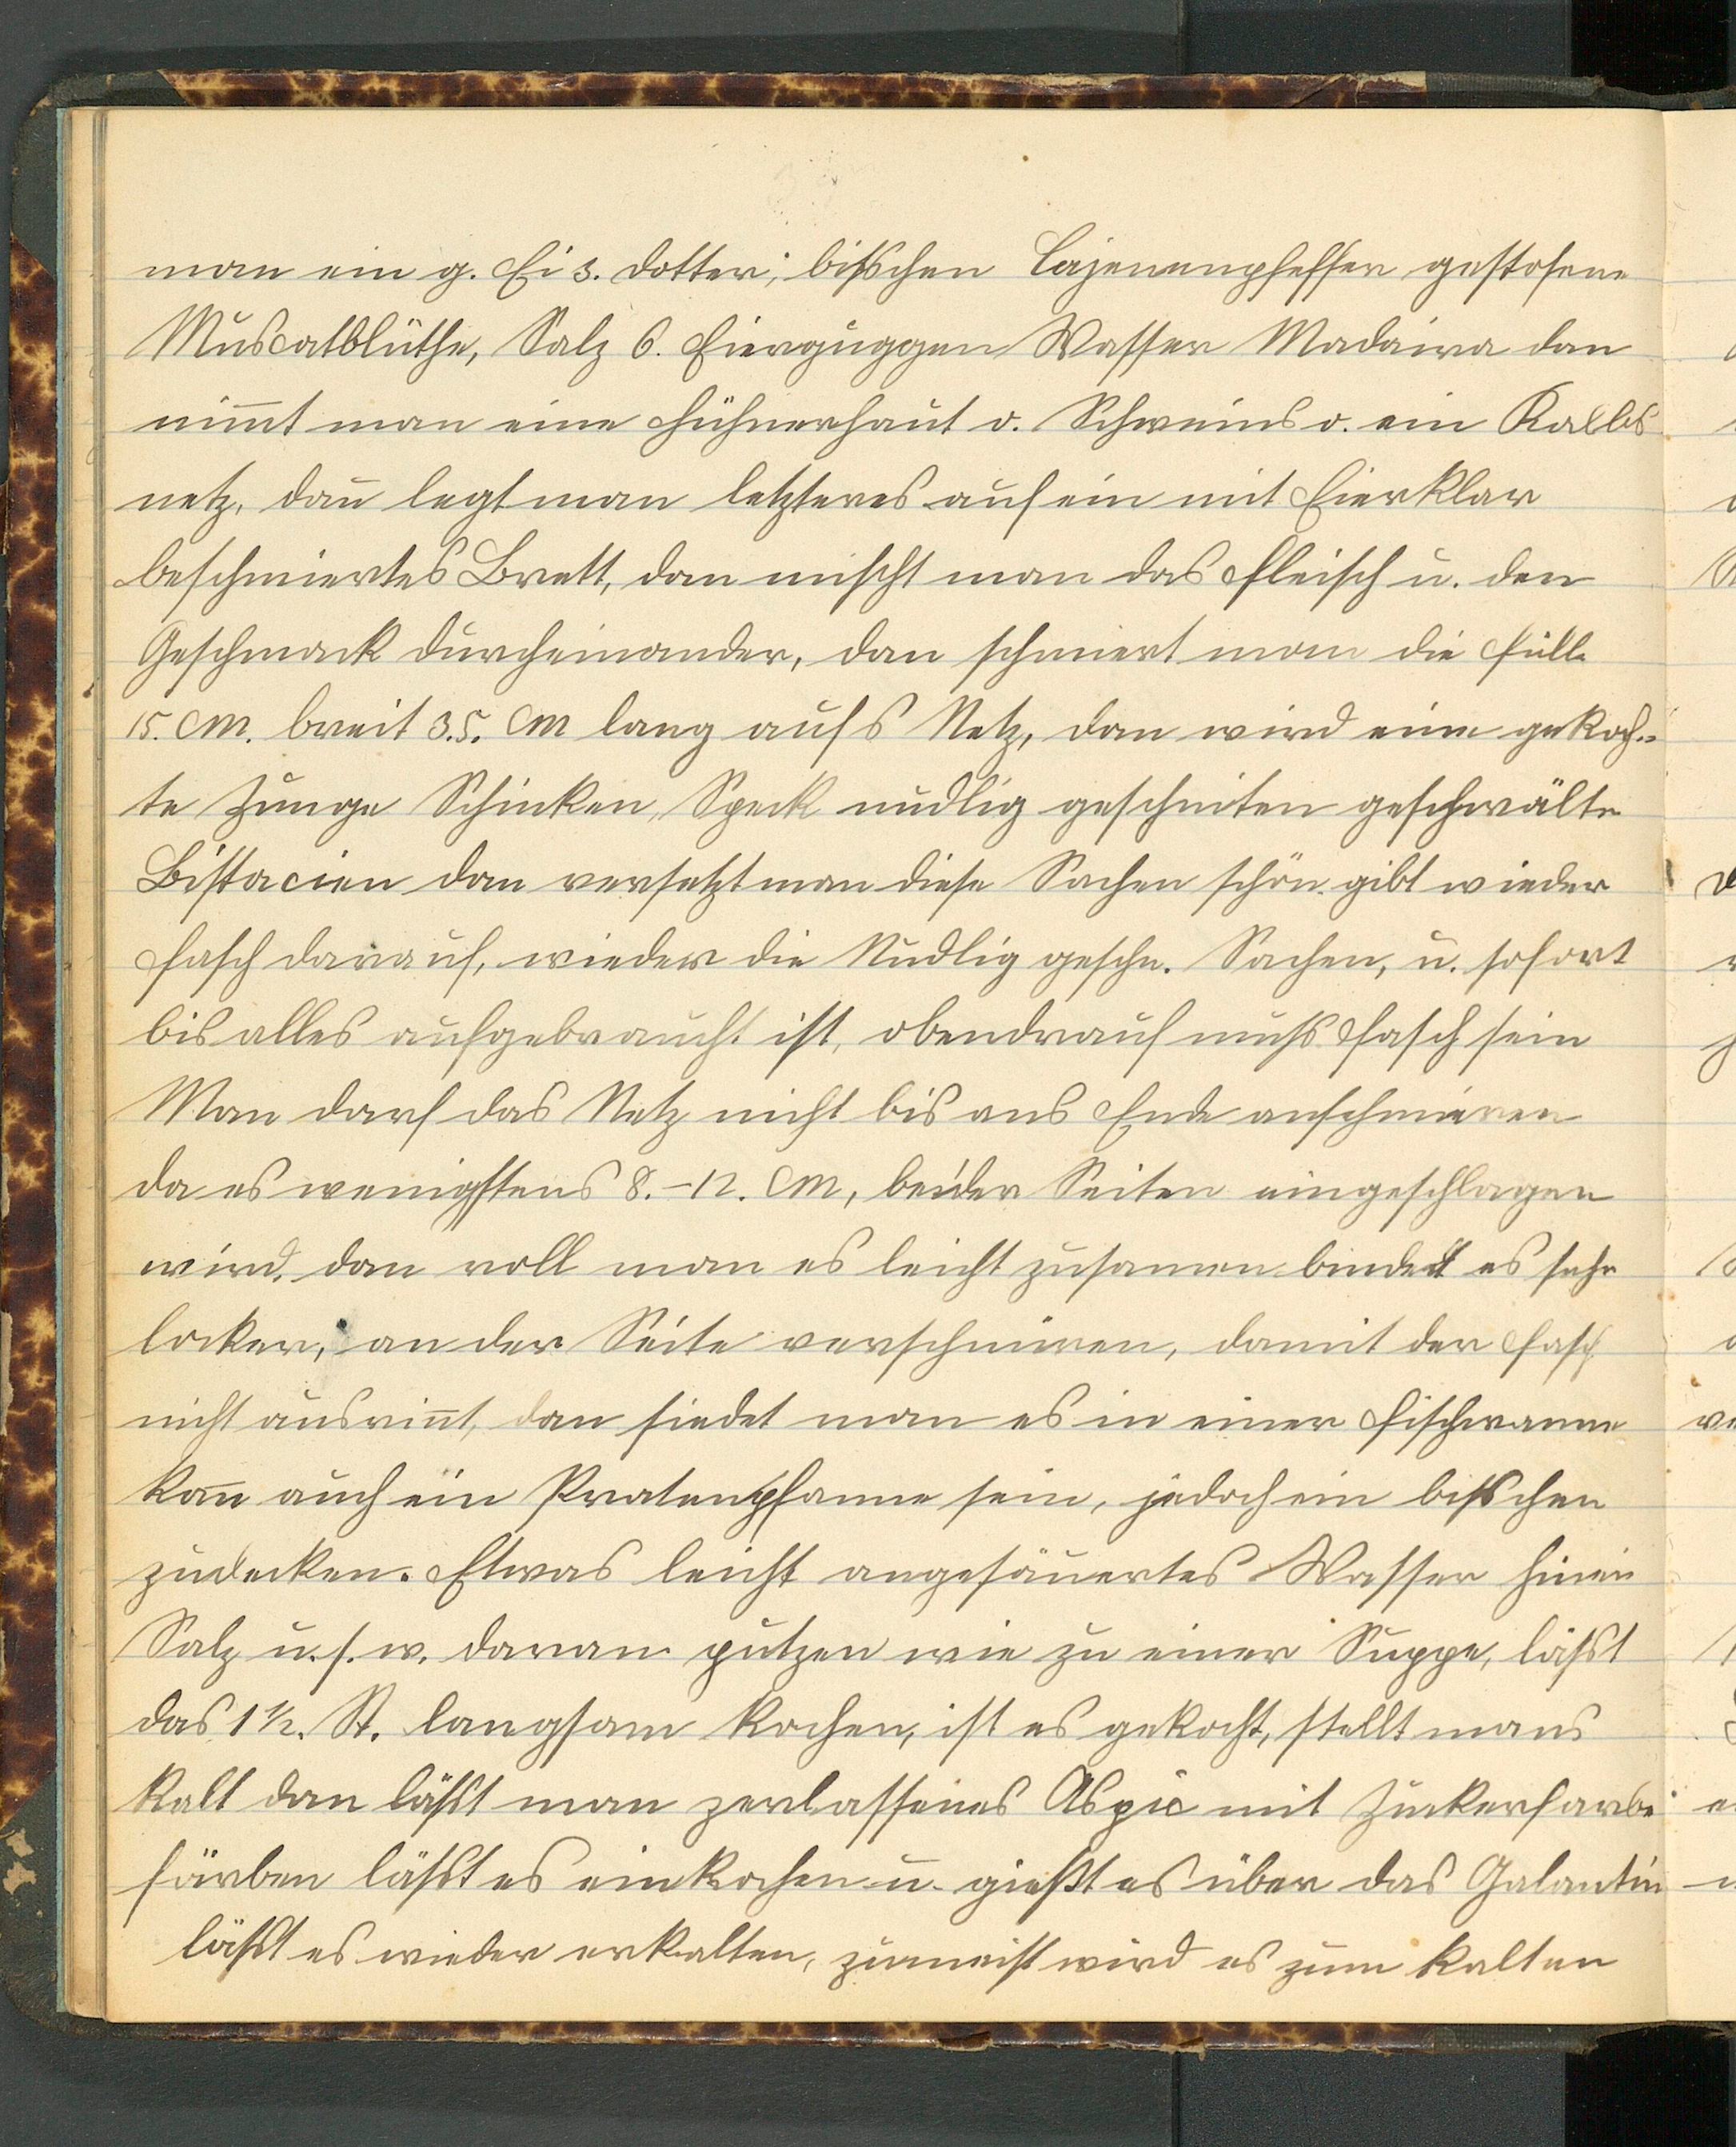 man ein g. Ei 3. Dotter, bißchen Cajenenpfeffer gestosene
Muscatblüthe, Salz 6. Eierguggen Wasser Madaira dan
nim̅t man eine Hühnerhaut o. Schweins o. ein Kalbs
netz. dan̅ legt man letzteres auf ein mit Eierklar
beschmiertes Brett, dan mischt man das Fleisch u. den
Geschmack durcheinander, dan schmiert man die Fülle
15. cm. breit 35. cm lang aufs Netz, dan wird eine gekoch..
te Zunge Schinken, Speck nudlig geschniten geschwälte
Bistacien dan versetzt man diese Sachen schön gibt wieder
Fasch darauf, wieder die Nudlig geschn. Sachen, u. sofort
bis alles aufgebraucht ist, obendrauf muß Fasch sein
Man darf das Netz nicht bis ans Ende anschmieren
da es wenigstens 8.-12. cm, beider Seiten eingeschlagen
wird, dan roll man es leicht zusamen bindet es sehr
locker, an der Seite verschnüren, damit der Fasch
nicht ausrin̅t, dan siedet man es in einer Fischwanne
kan̅ auch ein Pratenpfanne sein, jedoch ein bißchen
zudecken. Etwas leicht angesäuertes Wasser hinein
Salz u. s. w. daran putzen wie zu einer Suppe, läßt
das 1 1/2. St. langsam kochen, ist es gekocht, stellt mans
kalt dan läßt man zerlassenes Aspic mit Zuckerfarbe
färben läßt es einkochen u. gießt es über das Galantin
läßt es wieder erkalten, zumeist wird es zum kalten